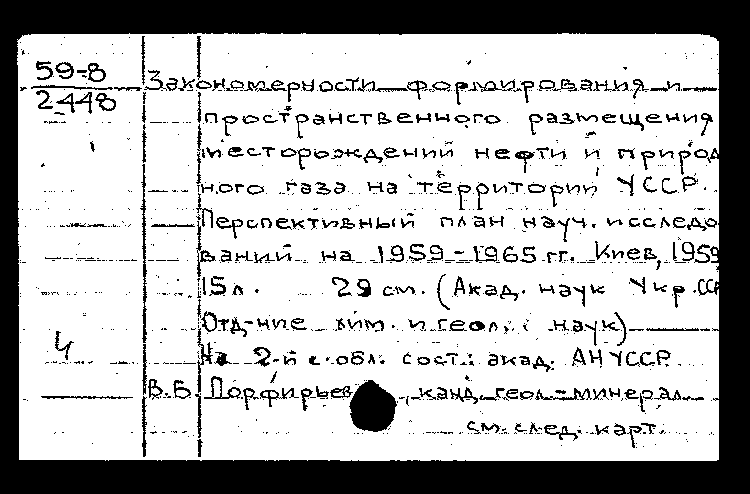 59-8
2448
Закономерности формирования и
пространственного размещения
месторождений нефти и природ
ного газа на территории УССР.
Перспективный план науч. исследо
ваний на 1959-1965 гг. Киев, 1959
15 л. 29 см. (Акад. наук Укр.ССР
Отд-ние хим. и геол. наук)
4
На 2-й с. обл. сост.: акад. АН УССР
В.Б. Порфирьев, канд. геол.-минерал
см. след. карт.